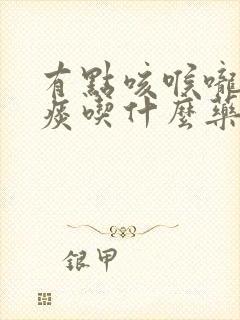 有點咳喉嚨
痰喫什麼藥
銀甲